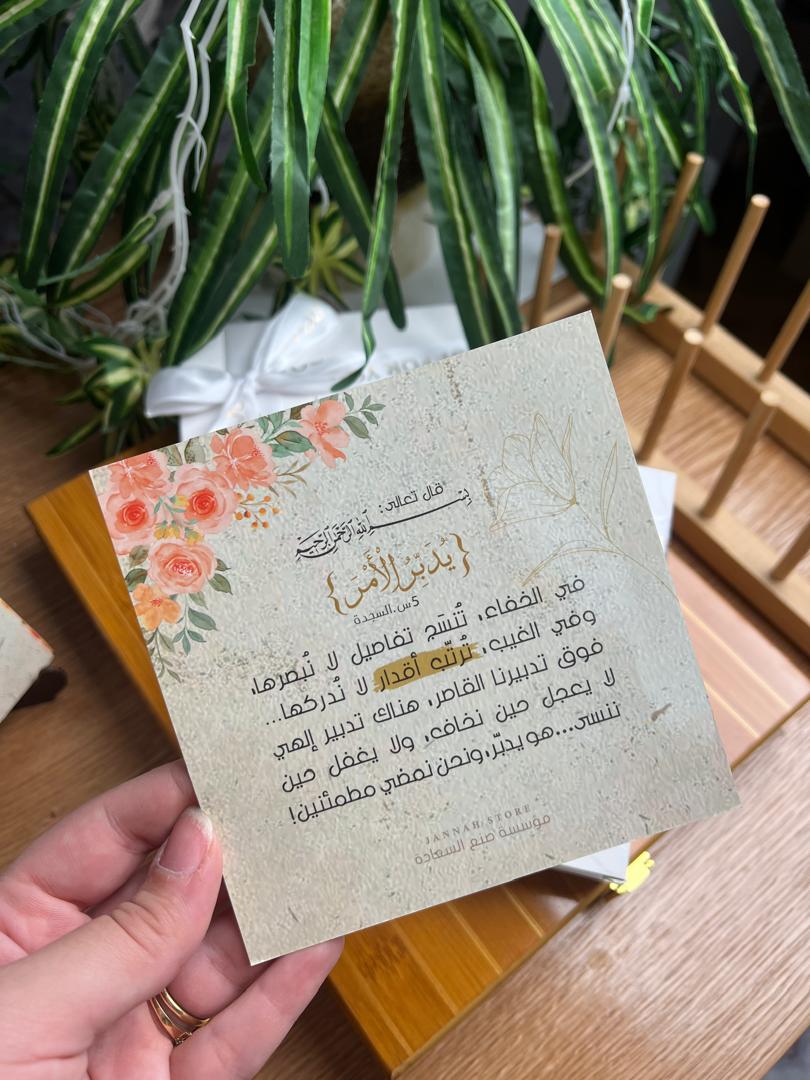 قال تعالى:
بسم الله الرحمن الرحيم
{يُدَبِّرُ الْأَمْرَ}
5س.السجدة
في الخفاء، تُنسَج تفاصيل لا نُبصرها،
وفي الغيب، تُرتّب أقدار لا نُدركها...
فوق تدبيرنا القاصر، هناك تدبير إلهي
لا يعجل حين نخاف، ولا يغفل حين
ننسى...هو يدبّر،ونحن نمضي مطمئنين!
JANNAH STORE
مؤسسة صنع السعادة